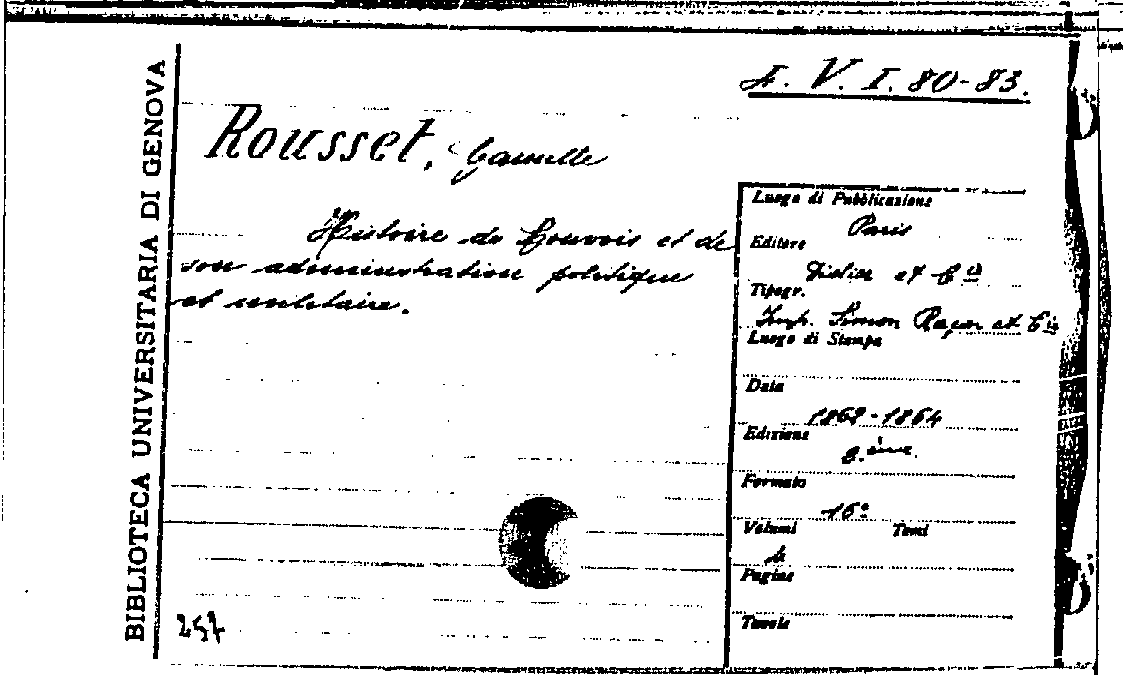 BIBLIOTECA UNIVERSITARIA DI GENOVA
F. V. I. 80-83.
Rousset, Camille
Histoire de Louvois et de
son administration politique
et militaire.
Luogo di Pubblicazione
Paris
Editore
Didier et C.ie
Tipogr.
Imp. Simon Raçon et C.ie
Luogo di Stampa
Data
1862-1864
Edizione
2.ème
Formato
16°
Volumi Tomi
4
Pagine
Tavole
257